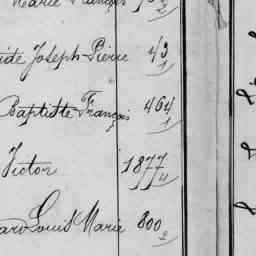 Marie François
Joseph Pierre 43
1
Baptiste François 464
1
Victor 1877
11
Louis Marie 800
2